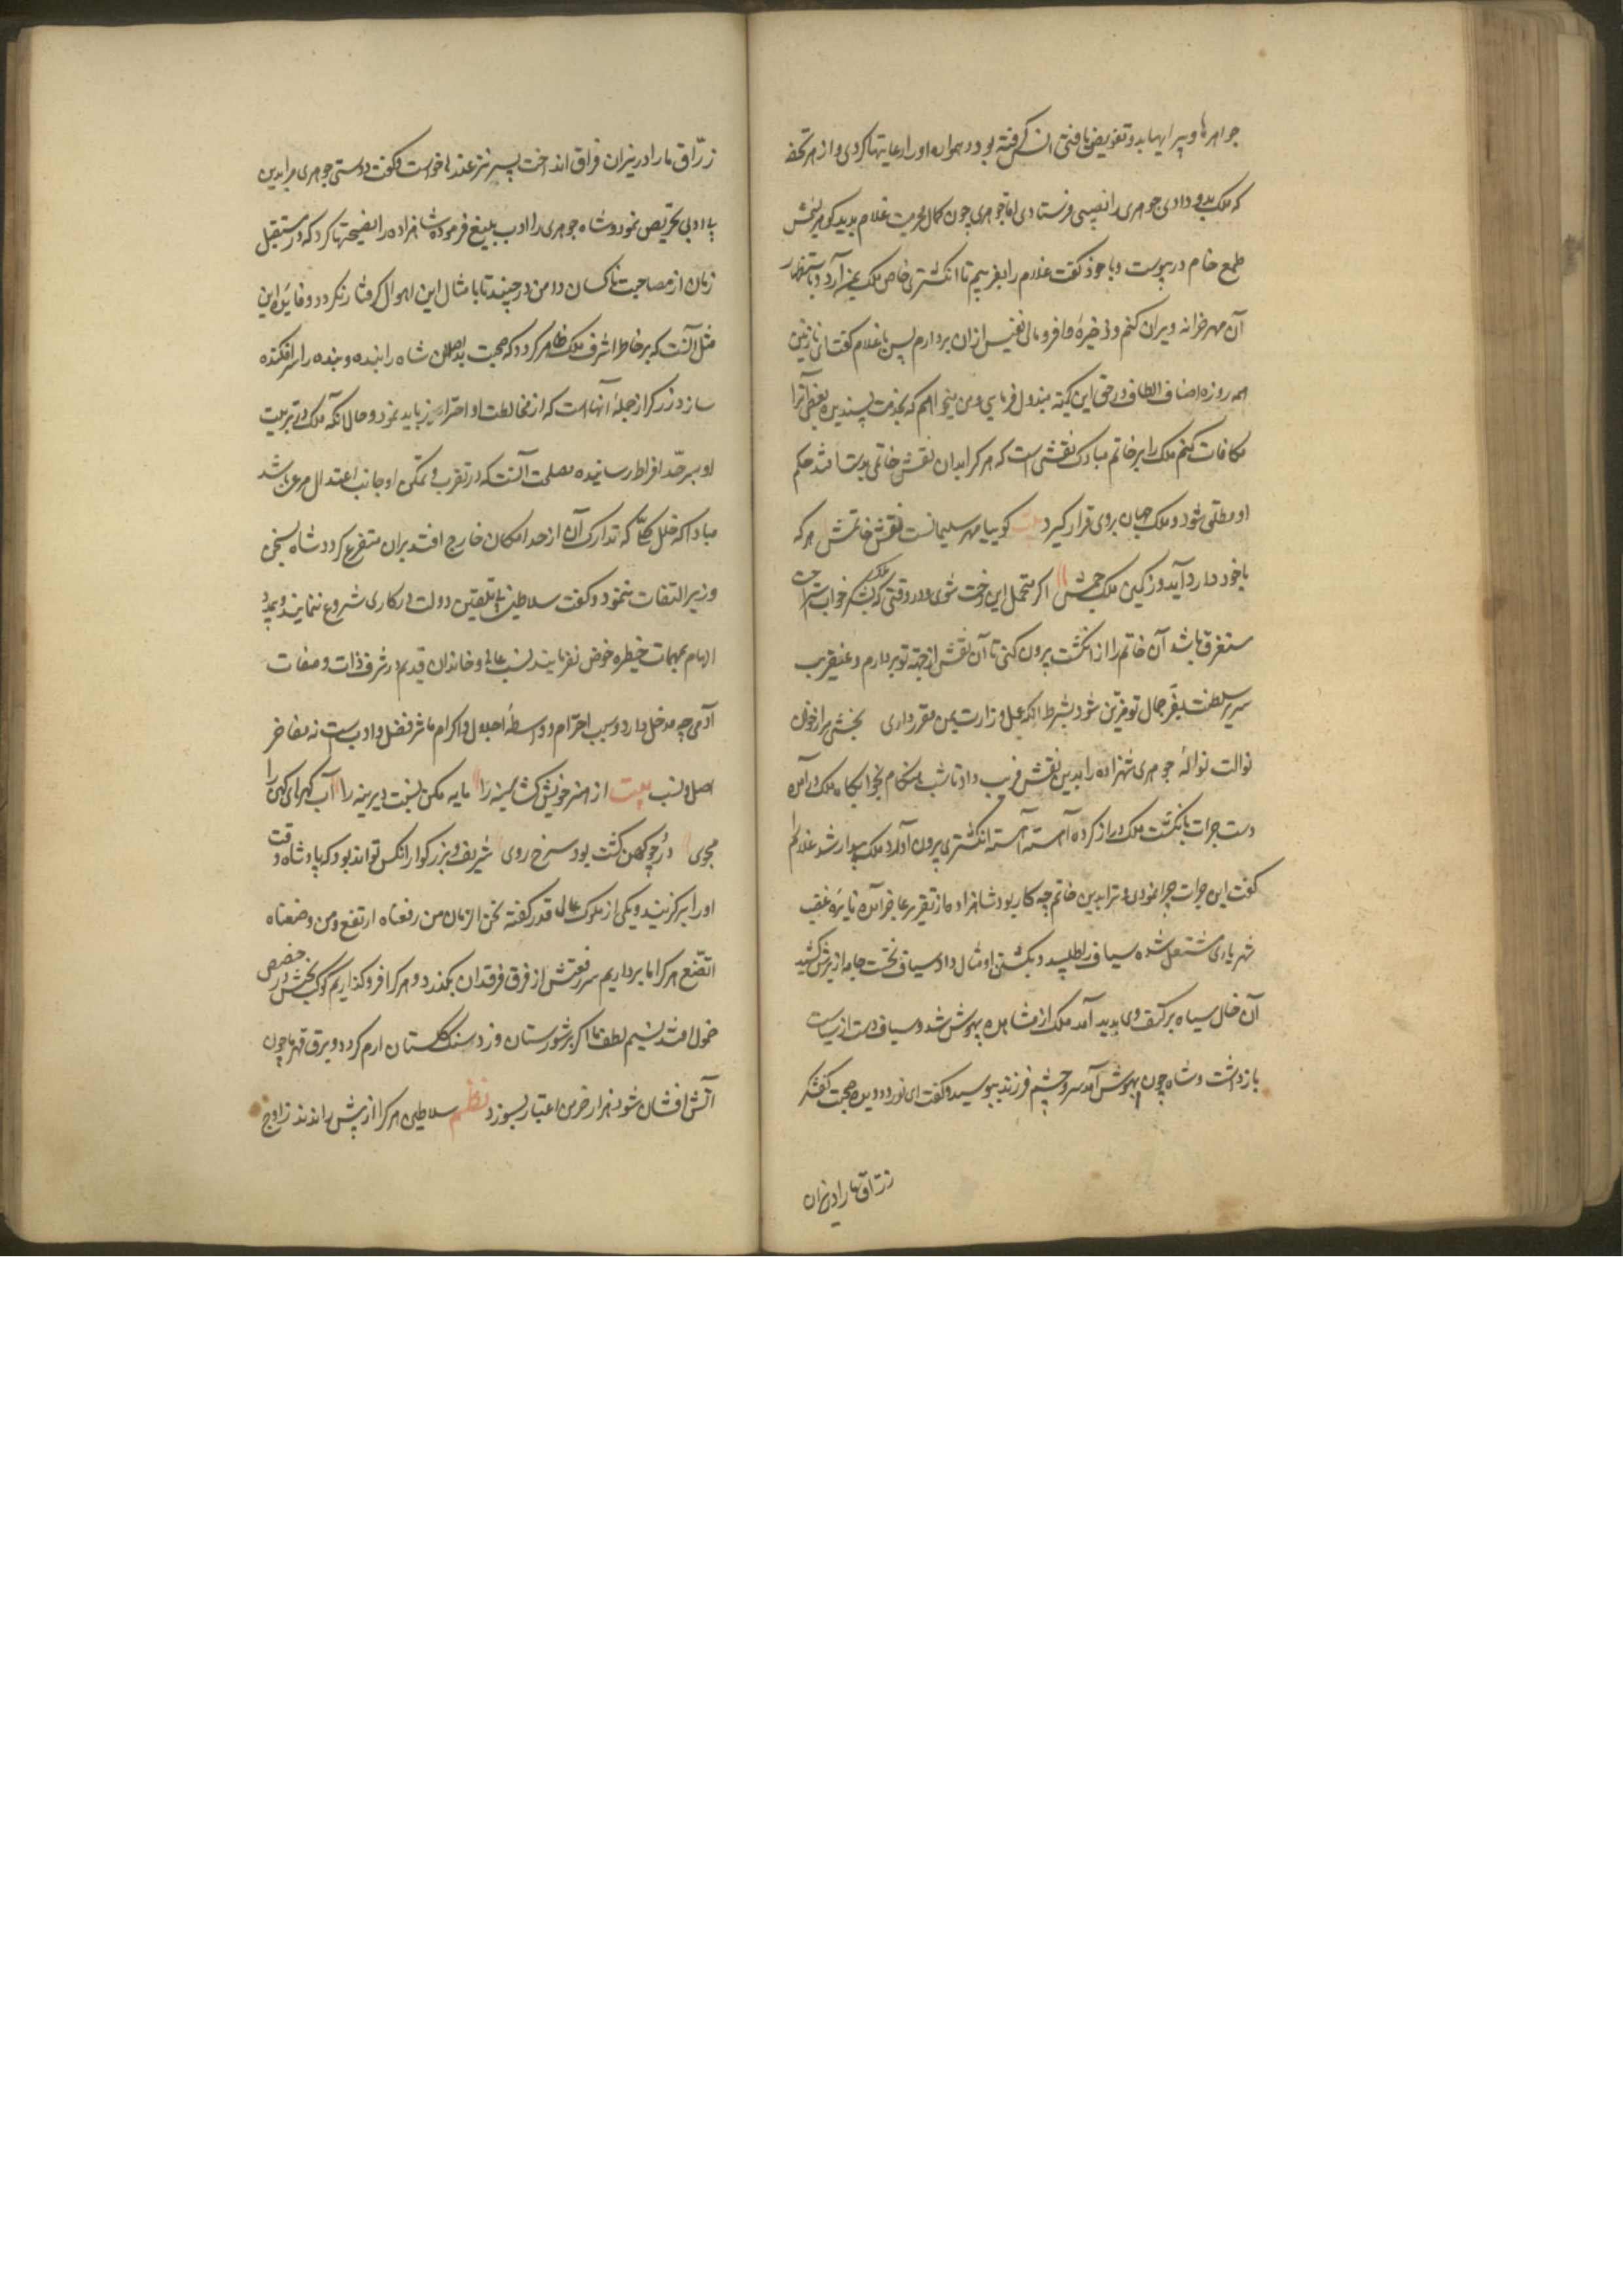 جواهرها و پیرایها بدو تفویض یافتی انس گرفته بود و همواره او را رعایتها کردی و از هر تحفه
که ملک بدو دادی جوهری را نصیبی فرستادی اما جوهری چون کمال محرمیت غلام بدید
طمع خام در پوست و با خود گفت غلام را بفریبم تا انگشتری خاص ملک بمن آرد و باستظهار
آن مهر خزانه ویران کنم و ذخیرهٔ وافر و مالی نفیس ازان بردارم پس با غلام گفت ای نازنین
همه روزه اصناف الطاف در حق این کمینه مبذول فرمایی و من میخواهم که بخدمت پسندیده بعضی آنرا
مکافات کنم ملک را بر خاتم مبارک نقشی است که هر کرا بدان نقش خاتمی بدست افتد حکم
او مطلق شود و ملک جهان بر وی قرار گیرد بیت گوییا مهر سلیمانست نقش خاتمش هر که
با خود دارد آید در نگین ملک جمش اگر متحمل این زحمت شوی و در وقتی که ملک بشکر خواب استراحت
مستغرق باشد آن خاتم را از انگشت بیرون کنی تا آن نقش از جهة تو بردارم و عنقریب
سریر سلطنت بفر جمال تو مزین شود بشرط آنکه عمل وزارت بمن مقرر داری بخشش مرا از خوان
نوالت نوالهٔ جوهری شهزاده را بدین نقش فریب داد تا شب هنگام بخوابگاه ملک درآمده
دست جرات بانگشت ملک دراز کرده آهسته آهسته انگشتری بیرون آورد ملک بیدار شد غلام را
گفت این جرات چرا نمودی و ترا بدین خاتم چه کار بود شاهزاده از تقریر عاجز آمده نایرهٔ غضب
شهریاری مشتعل شده سیاف را طلبید و بکشتن او مثال داد سیاف نخست جامه از برش کشید
آن خال سیاه بر کتف وی پدید آمد ملک از مشاهده بیهوش شد و سیاف دست از سیاست
بازداشت و شاه چون بهوش آمد سر و چشم فرزند ببوسید و گفت ای نور دو دیده صحبت
زراق ما را در نیران
زرّاق ما را در نیران فراق انداخت پسر نیز عذرها خواست و گفت دوستی جوهری مرا بدین
بی ادبی تحریص نمود و شاه جوهری را ادب بلیغ فرموده شاهزاده را نصیحتها کرد که در مستقبل
زمان از مصاحبت ناکسان دامن درچیند تا بامثال این اهوال گرفتار نگردد و فایدهٔ این
مثل آنست که بر خاطر اشرف ملک ظاهر گردد که صحبت بداصلان شاه را بنده و بنده را سرافکنده
سازد و زرگر از جمله آنهاست که از مخالطت او احتراز باید نمود و حال آنکه ملک در تربیت
او بسرحد افراط رسانیده مصلحت آنست که در تقرب و تمکن او جانب اعتدال مرعی باشد
مبادا که خلل کلی که تدارک آن از حد امکان خارج افتد بران متفرع گردد شاه بسخن
وزیر التفات ننمود و گفت سلاطین بی تلقین دولت در کاری شروع ننمایند و بی مدد
الهام بمهمات خطیره خوض نفرمایند نسب عالی و خاندان قدیم در شرف ذات و صفات
آدمی چه مدخل دارد و سبب احترام و واسطهٔ اجلال و اکرام مآثر فضل و ادبست نه مفاخر
اصل و نسب بیت از هنر خویش گشا سینه را مایه مکن نسبت دیرینه را آب گهرهای کهن را
مجوی درّ چو کهن گشت بود سرخ روی شریف و بزرگوار انکس تواند بود که پادشاه وقت
او را برگزیند و یکی از ملوک عالی قدر گفته نحن الزمان من رفعناه ارتفع و من وضعناه
اتّضع هر کرا ما برداریم سر رفعتش از فرق فرقدان بگذرد و هر کرا فروگذاریم کوکب بختش در حضیض
خمول افتد نسیم لطف ما اگر بر شورستان وزد سنگ گلستان ارم گردد و برق قهر ما چون
آتش افشان شود هزار خرمن اعتبار بسوزد نظم سلاطین هر کرا از پیش راندند ز اوج